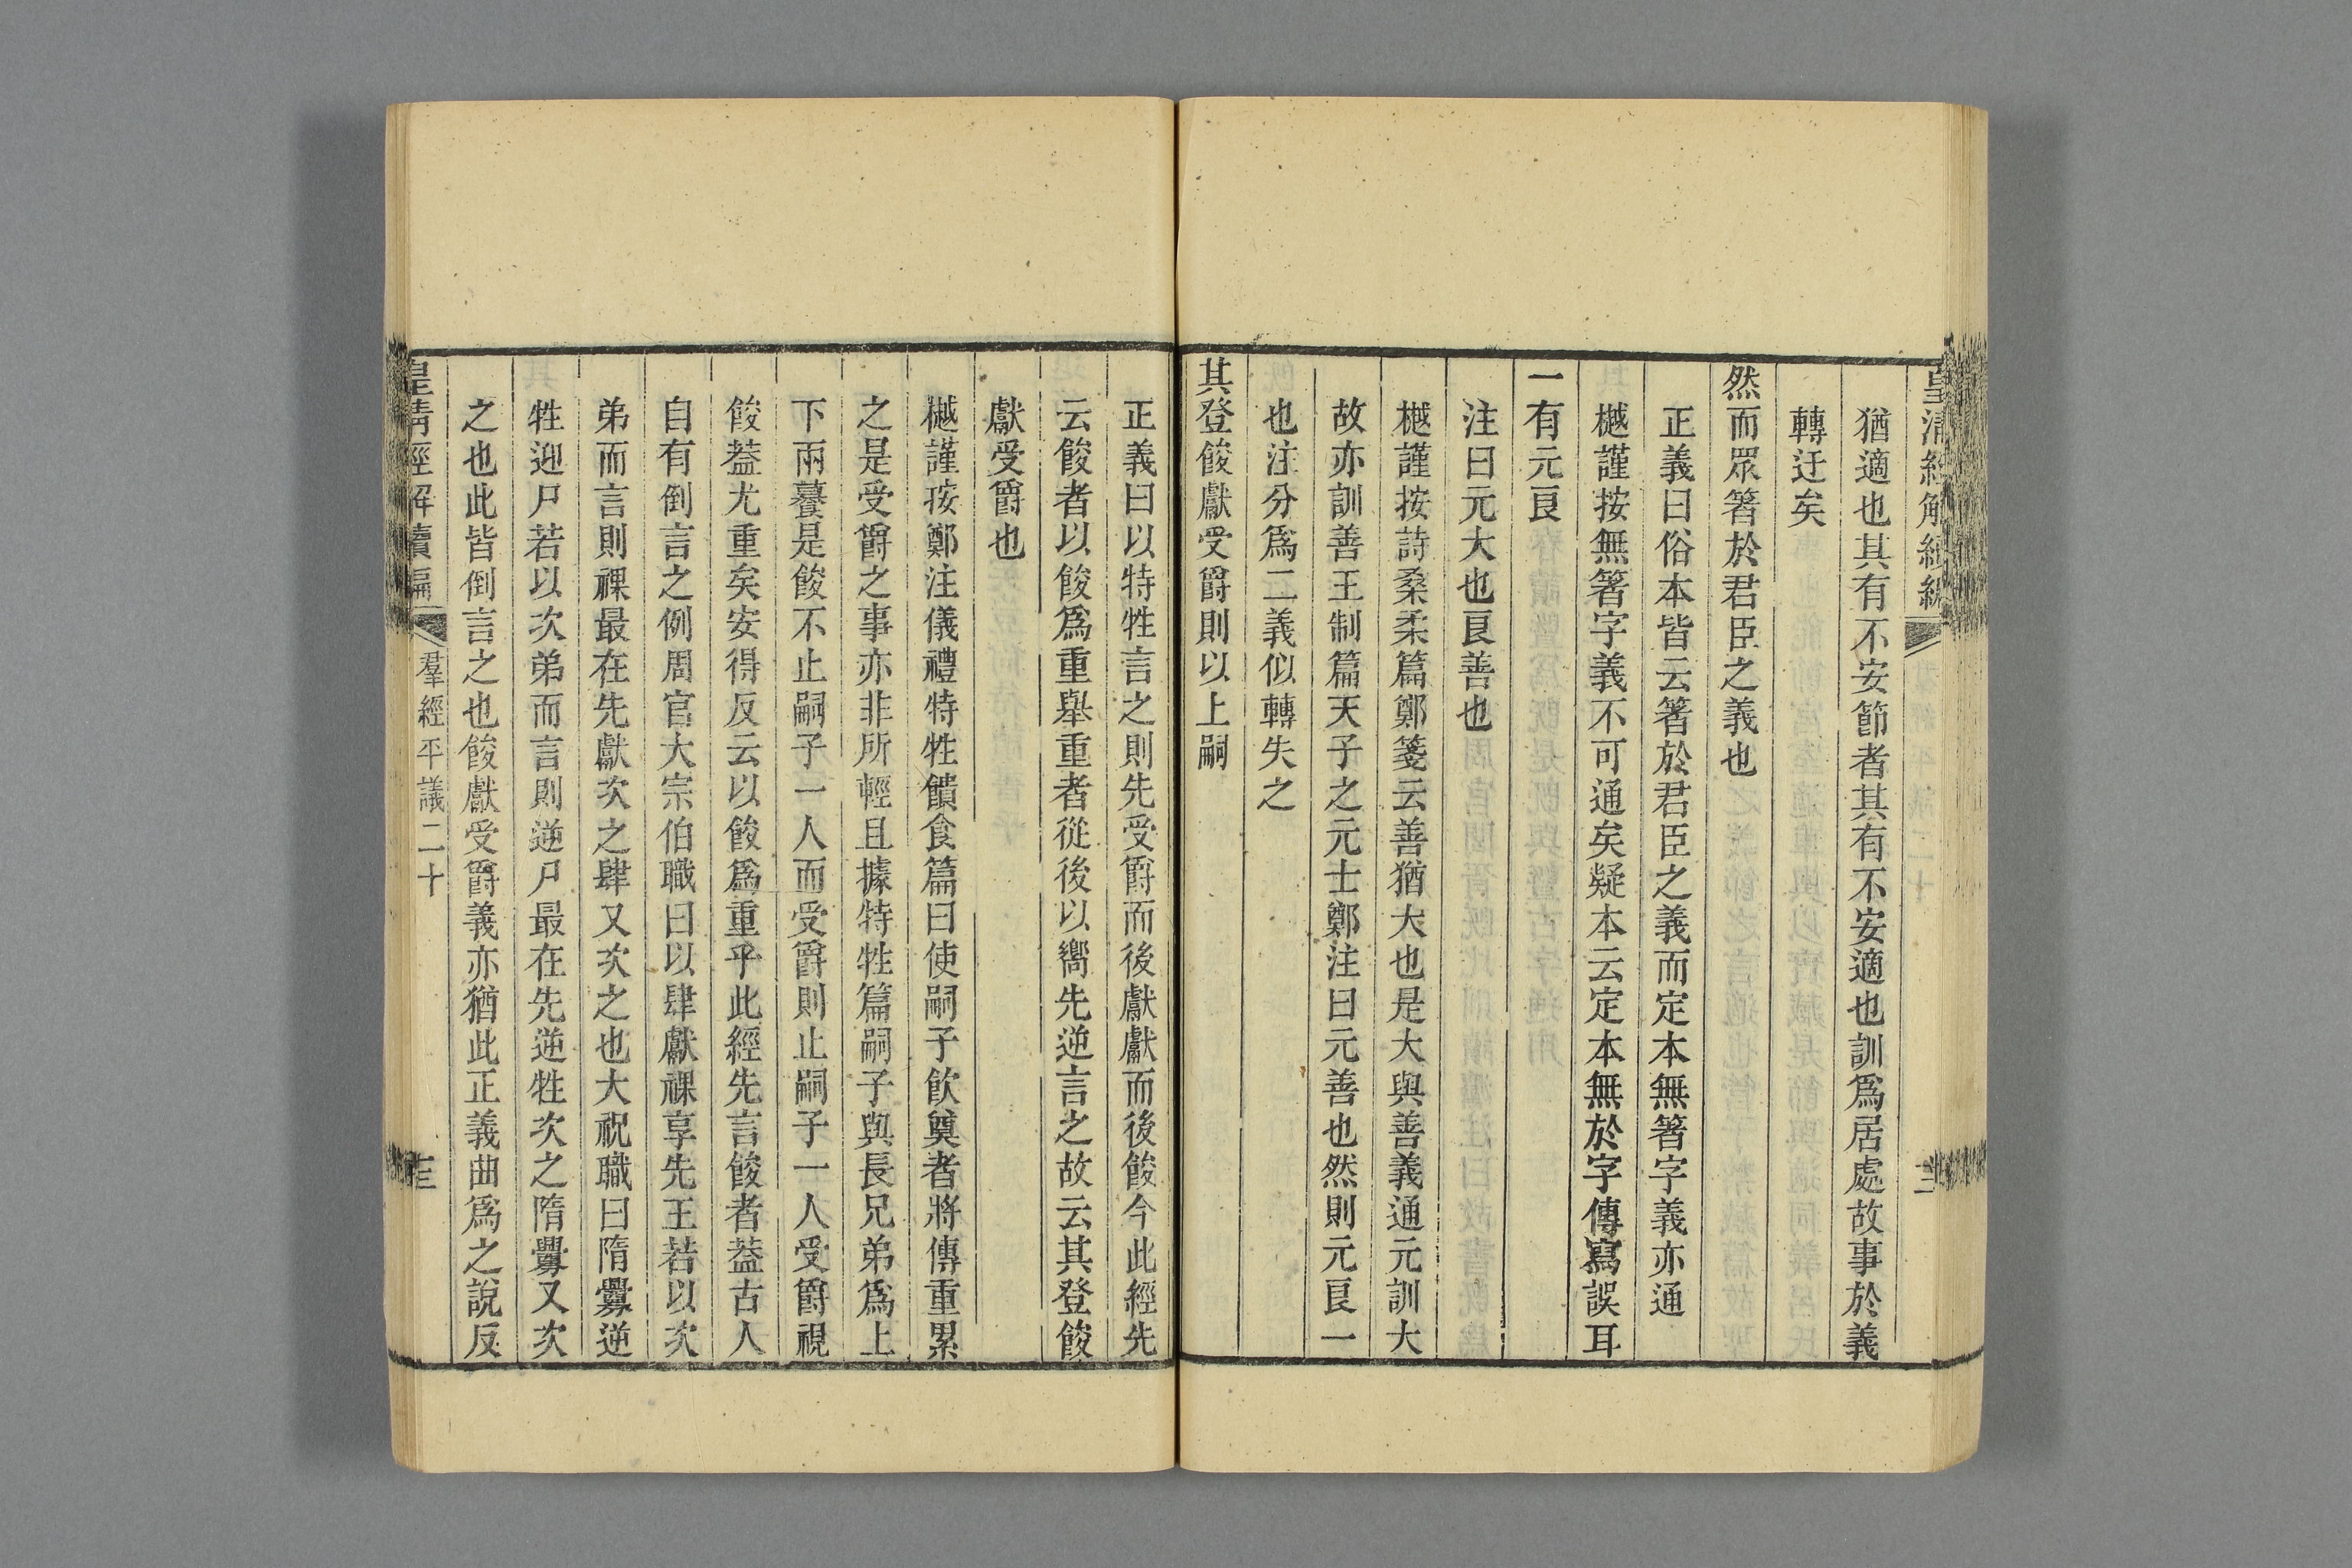 皇清經解續編
猶適也其有不安節者其有不安適也訓爲居處故事於義
轉迂矣
然而眾箸於君臣之義也
正義曰俗本皆云箸於君臣之義而定本無箸字義亦通
樾謹按無箸字義不可通矣疑本云定本無於字傳寫誤耳
一有元良
注曰元大也良善也
樾謹按詩桑柔篇鄭箋云善猶大也是大與善義通元訓大
故亦訓善王制篇天子之元士鄭注曰元善也然則元良一
也注分爲二義似轉失之
其登餕獻受爵則以上嗣
正義曰以特牲言之則先受爵而後獻獻而後餕今此經先
云餕者以餕爲重舉重者從後以嚮先逆言之故云其登餕
獻受爵也
樾謹按鄭注儀禮特牲饋食篇曰使嗣子飲奠者將傳重累
之是受爵之事亦非所輕且據特牲篇嗣子與長兄弟爲上
下兩䉵是餕不止嗣子一人而受爵則止嗣子一人受爵視
餕葢尤重矣安得反云以餕爲重乎此經先言餕者葢古人
自有倒言之例周官大宗伯職曰以肆獻祼享先王若以次
弟而言則祼最在先獻次之肆又次之也大祝職曰隋釁逆
牲迎尸若以次弟而言則逆尸最在先逆牲次之隋釁又次
之也此皆倒言之也餕獻受爵義亦猶此正義曲爲之說反
皇清經解續編 羣經平議二十 十三